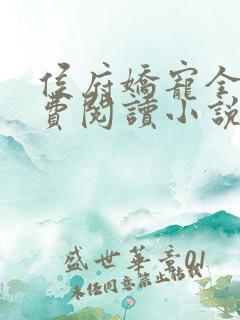 侯府嬌寵全
費閱讀小說
盛世華章01
未經同意禁止轉載